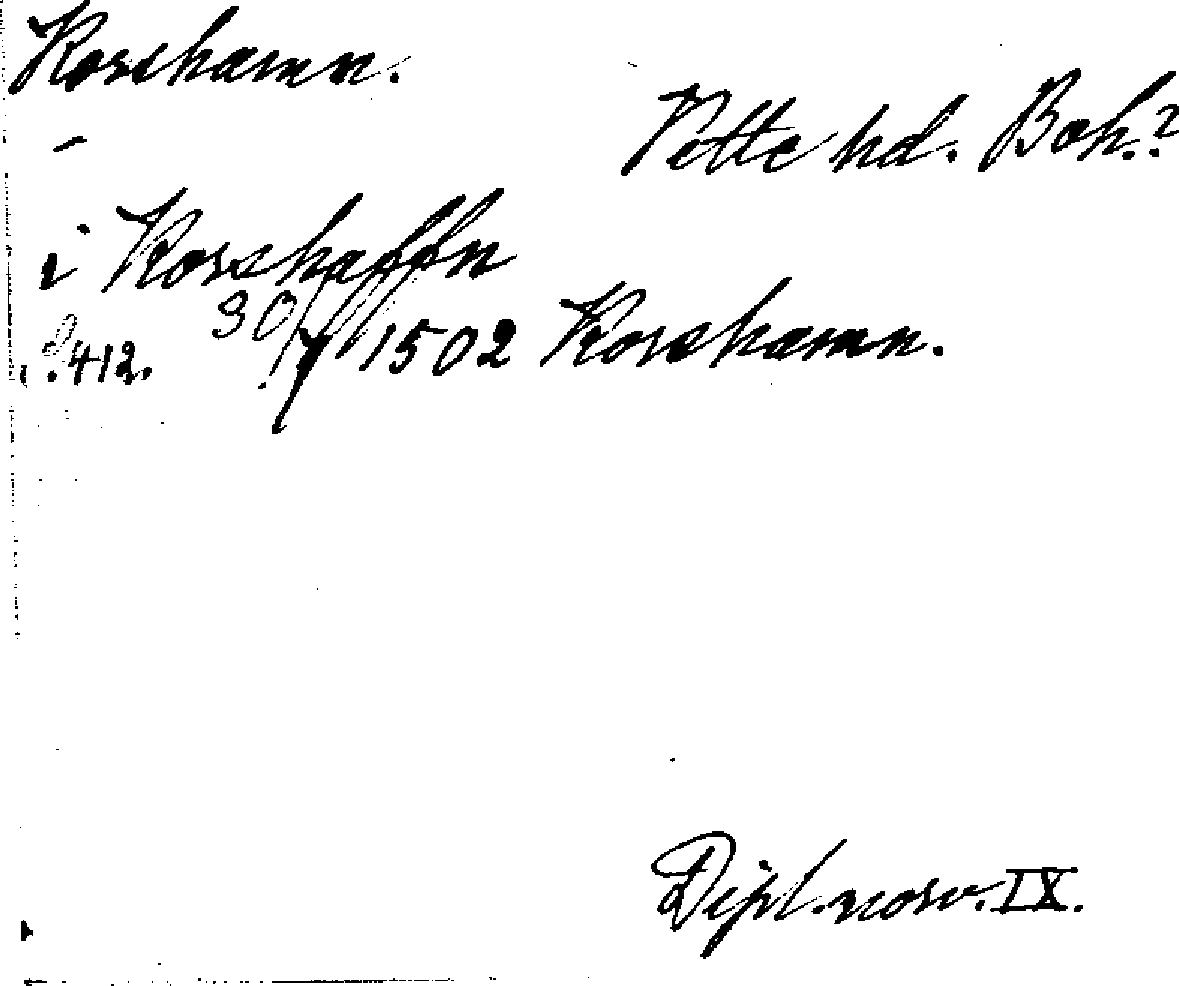 Korshamn.
Vette hd. Boh.?
-
i Korshaffn
s. 412. 30/7 1502 Korshamn.
Dipl. norv. IX.